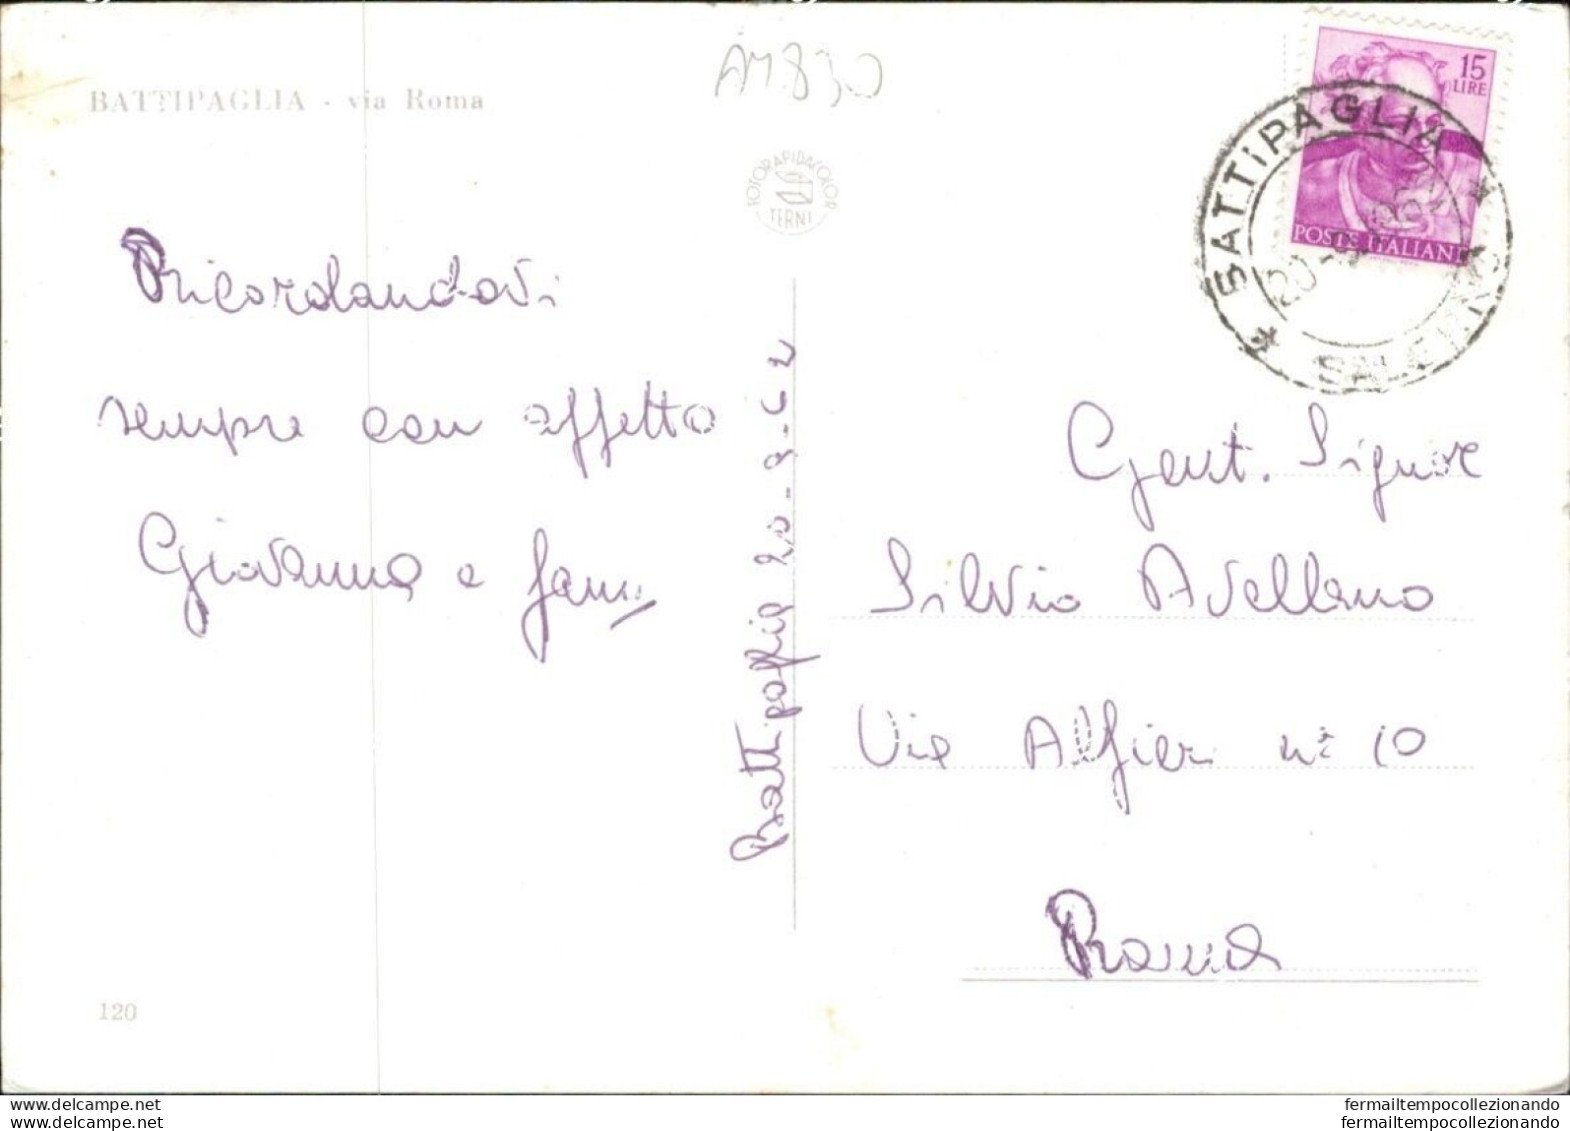 BATTIPAGLIA - via Roma
FOTORAPIDACOLOR
TERNI
15
LIRE
POSTE ITALIANE
* BATTIPAGLIA *
SALERNO
Ricordandovi
sempre con affetto
Giovanna e fam.
Battipaglia 20-9-62
Gent. Signore
Silvio Avellano
Via Alfieri n° 10
Roma
120
www.delcampe.net
your1230
fermailtempocollezionando
fermailtempocollezionando